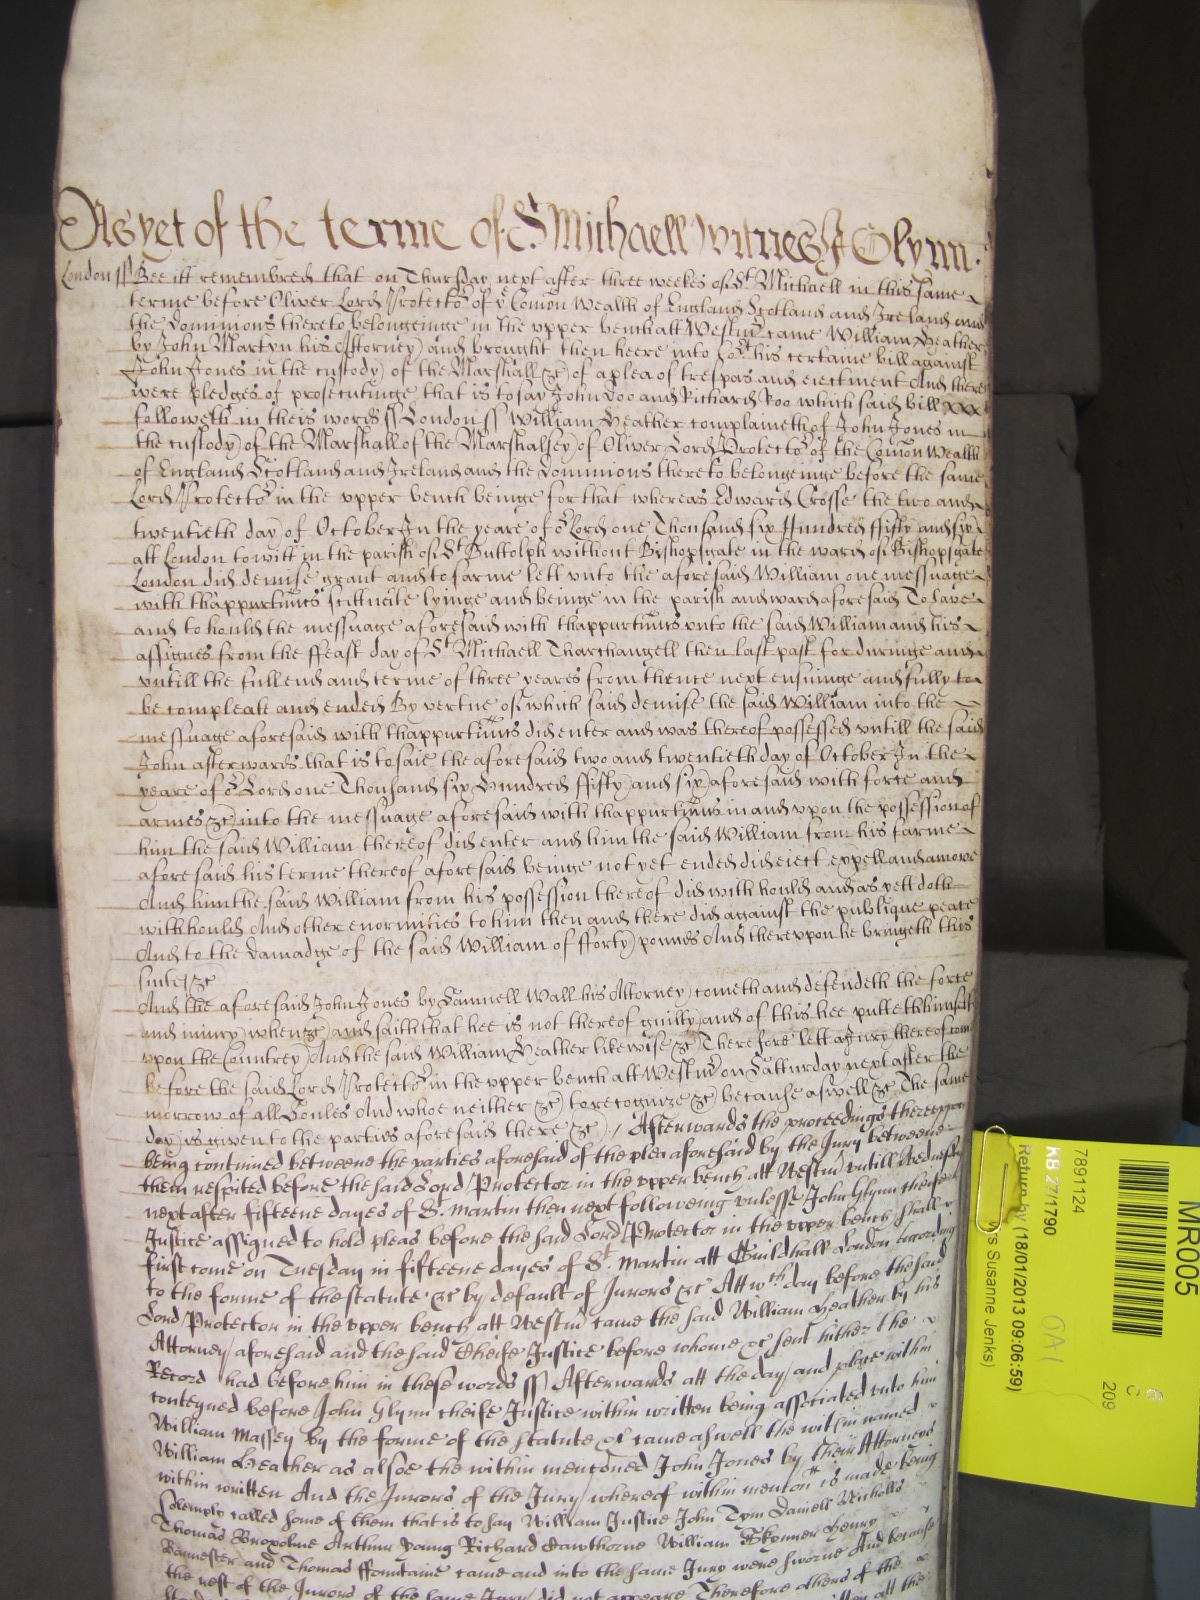 As yet of the terme of St Michaell Witnes J Glynn.
London ss Bee itt remembred that on Thursday next after three weekes of St Michaell in this same
terme before Oliver Lord Protector of ye Comon Wealth of England Scotland and Ireland and
the dominions thereto belongeinge in the upper bench att Westmr came William Heather
by John Martyn his Attorney and brought then heere into Cort his certaine bill against
John Jones in the custody of the Marshall &c of a plea of trespas and eiectment And there
were pledges of prosecutinge that is to say John Doo and Richard Roo which said bill
followeth in theis words ss London ss William Heather complaineth of John Jones in
the custody of the Marshall of the Marshalsey of Oliver Lord Protector of the Comon Wealth
of England Scotland and Ireland and the dominions thereto belongeinge before the same
Lord Protector in the upper bench beinge for that whereas Edward Crosse the two and
twentieth day of October In the yeare of or Lord one Thousand six Hundred ffifty and six
att London to witt in the parish of St Buttolph without Bishopsgate in the ward of Bishopsgate
London did demise grant and to farme lett unto the aforesaid William one messuage
with thappurtnncs scittueite lyinge and beinge in the parish and ward aforesaid To have
and to hould the messuage aforesaid with thappurtnncs unto the said William and his
assignes from the ffeast day of St Michaell Tharchangell then last past for duringe and
untill the full end and terme of three yeares from thence next ensuinge and fully to
be compleate and ended By vertue of which said demise the said William into the
messuage aforesaid with thappurtnncs did enter and was thereof possessed untill the said
John afterwards that is to saie the aforesaid two and twentieth day of October In the
yeare of or Lord one Thousand six Hundred ffifty and six aforesaid with force and
armes &c into the messuage aforesaid with thappurtnncs in and upon the possession of
him the said William thereof did enter and him the said William from his farme
aforesaid his terme thereof aforesaid beinge not yet ended did eiect expell and amove
And him the said William from his possession thereof did with hould and as yett doth
with hould And other enormities to him then and there did against the publique peace
And to the damadge of the said William of fforty pounds And thereupon he bringeth this
suite &c
And the aforesaid John Jones by Samuell Wall his Attorney cometh and defendeth the force
and iniury when &c and saith that hee is not thereof guilty and of this hee putteth himself
upon the Countrey And the said William Heather likewise &c Therefore lett a Jury thereof come
before the said Lord Protector in the upper bench att Westmr on Satturday next after the
morrow of all Soules And whoe neither &c to recognize &c because aswell &c The same
day is given to the parties aforesaid there &c / Afterwards the proceedings thereupon
being continued betweene the parties aforesaid of the plea aforesaid by the Jury betweene
them respited before the said Lord Protector in the upper bench att Westmr untill Wednesday
next after fifteene dayes of St. Martin then next followeing unlesse John Glynn cheife
Justice assigned to hold pleas before the said Lord Protector in the upper bench shall
first come on Tuesday in fifteene dayes of St. Martin att Guildhall London according
to the forme of the statute &c by default of Jurors &c Att wch day before the said
Lord Protector in the upper bench att Westmr came the said William Heather by his
Attorney aforesaid and the said Cheife Justice before whome &c sent hither the
Record had before him in these words ss Afterwards att the day and place within
conteyned before John Glynn cheife Justice within written being associated unto him
William Massey by the forme of the statute &c came aswell the within named
William Heather as alsoe the within menconed John Jones by their Attorneys
within written And the Jurors of the Jury whereof within mencon is made being
solemply called some of them that is to say William Justice John Tym Daniell Nicholls
Thomas Arthur Young Richard Hawthorne William Skynner Henry
Bannester and Thomas ffountaine came and into the same Jury were sworne And because
the rest of the Jurors of the same Jury did not appeare Therefore others of the
MR005
7891124
KB 27/1790
209
Return by (18/01/2013 09:06:59)
Ms Susanne Jenks)